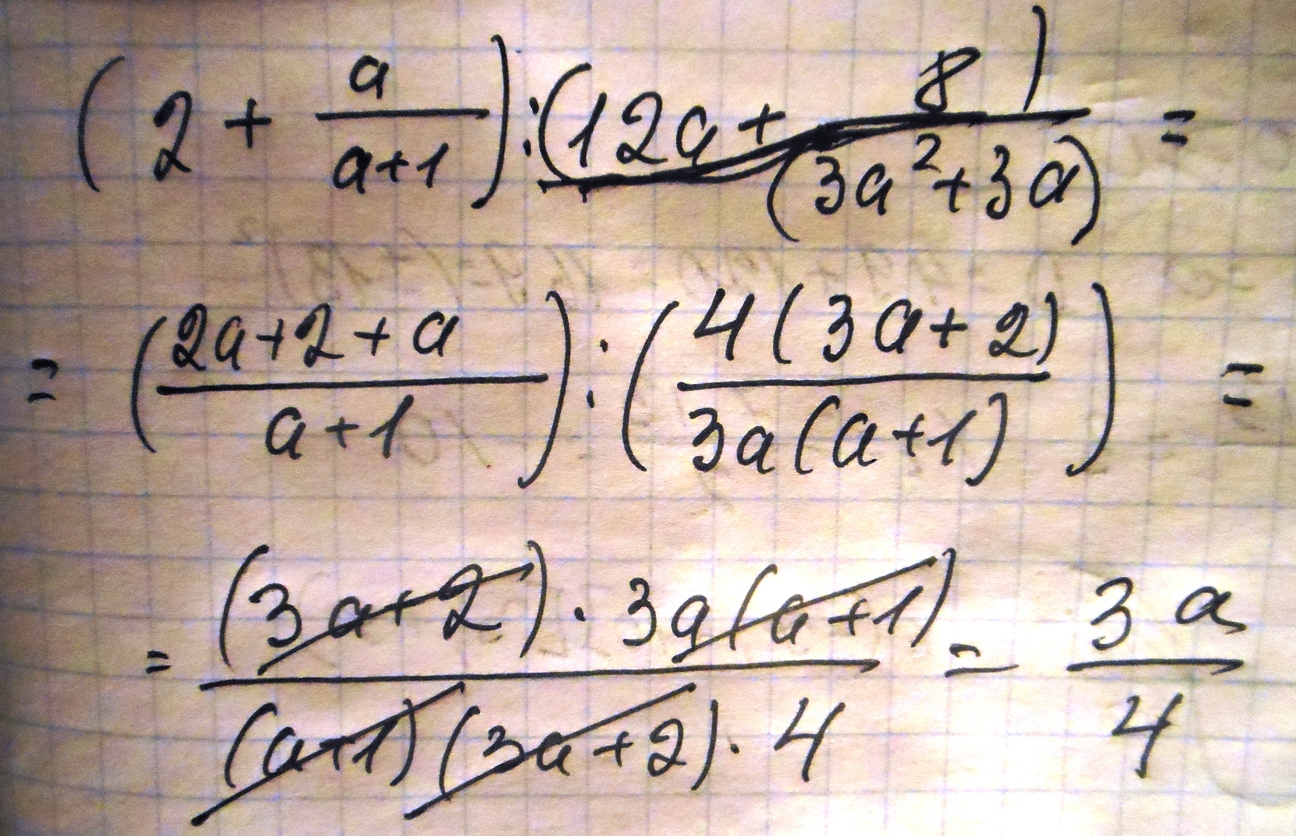 (2 + a/(a+1)) : (12a + 8)/(3a²+3a) =
= ((2a+2+a)/(a+1)) : (4(3a+2)/(3a(a+1))) =
= ((3a+2) · 3a(a+1))/((a+1)(3a+2) · 4) = 3a/4